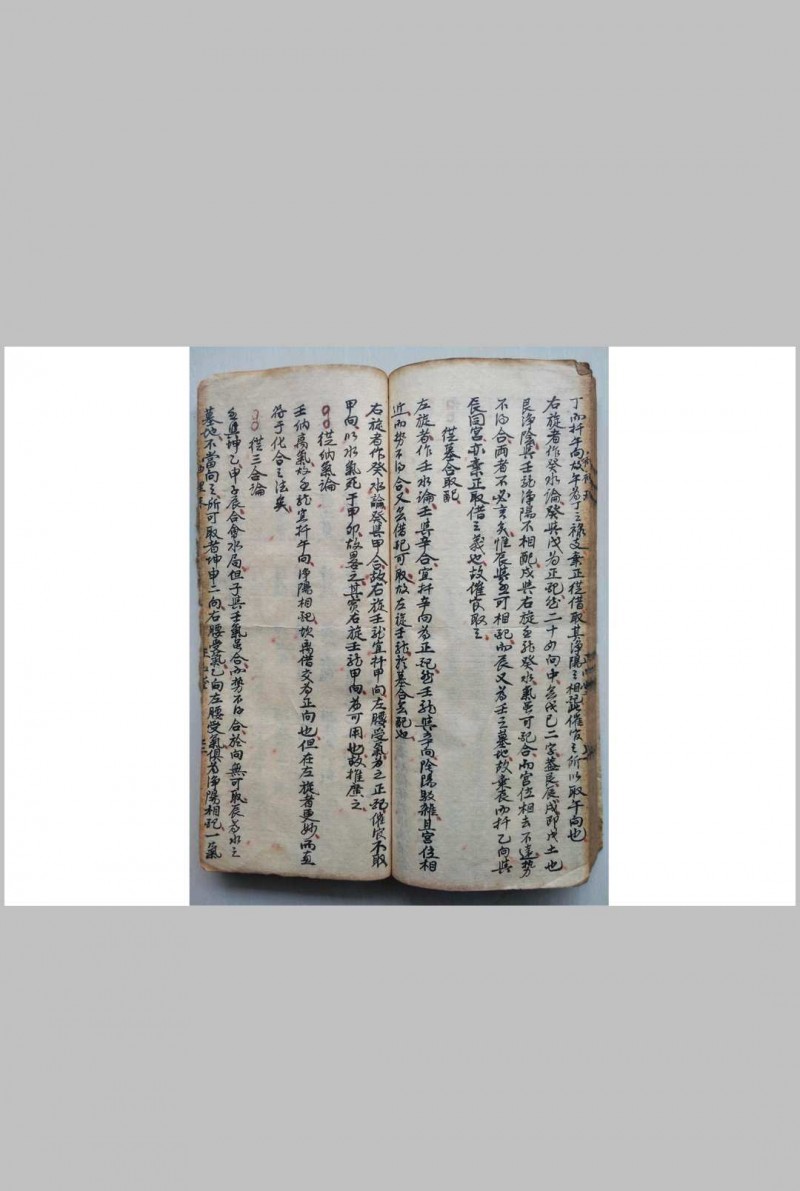 丁而扦午向故午為丁之祿支棄正從借取其淨陽之相配催官之所以取午向也
右旋者作癸水論癸與戊為正配然二十四向中無戊己二字蓋艮辰戌即戊土也
艮淨陰與壬龍淨陽不相配戌與右旋壬龍癸水氣虽可配合而宮位相去不遠势
不得合两者不必言矣惟辰與壬可相配而辰又為壬之墓地故棄辰而扦乙向與
辰同宮亦棄正取借之義也故催官取之
從墓合取配
左旋者作壬水論壬與辛合宜扦辛向為正配然壬龍與辛向陰陽駁雜且宮位相
近而势不得合又無借配可取故左旋壬龍於墓合無配也
右旋者作癸水論癸與甲合故右旋壬龍宜扦甲向左腰受氣為之正配催官不取
甲向以水氣死于甲卯故畧之其實右旋壬龍甲向為可用也故推廣之
從納氣論
壬納离氣故壬龍宜扦午向淨陽相配坎离借交為正向也但在左旋者更妙而直
符于化合之法矣
從三合論
壬與坤乙申子辰合會水局但子與壬氣虽合而势不得合於向無可取辰為水之
墓地不當向之所可取者坤申二向右腰受氣乙向左腰受氣俱為淨陽相配一氣